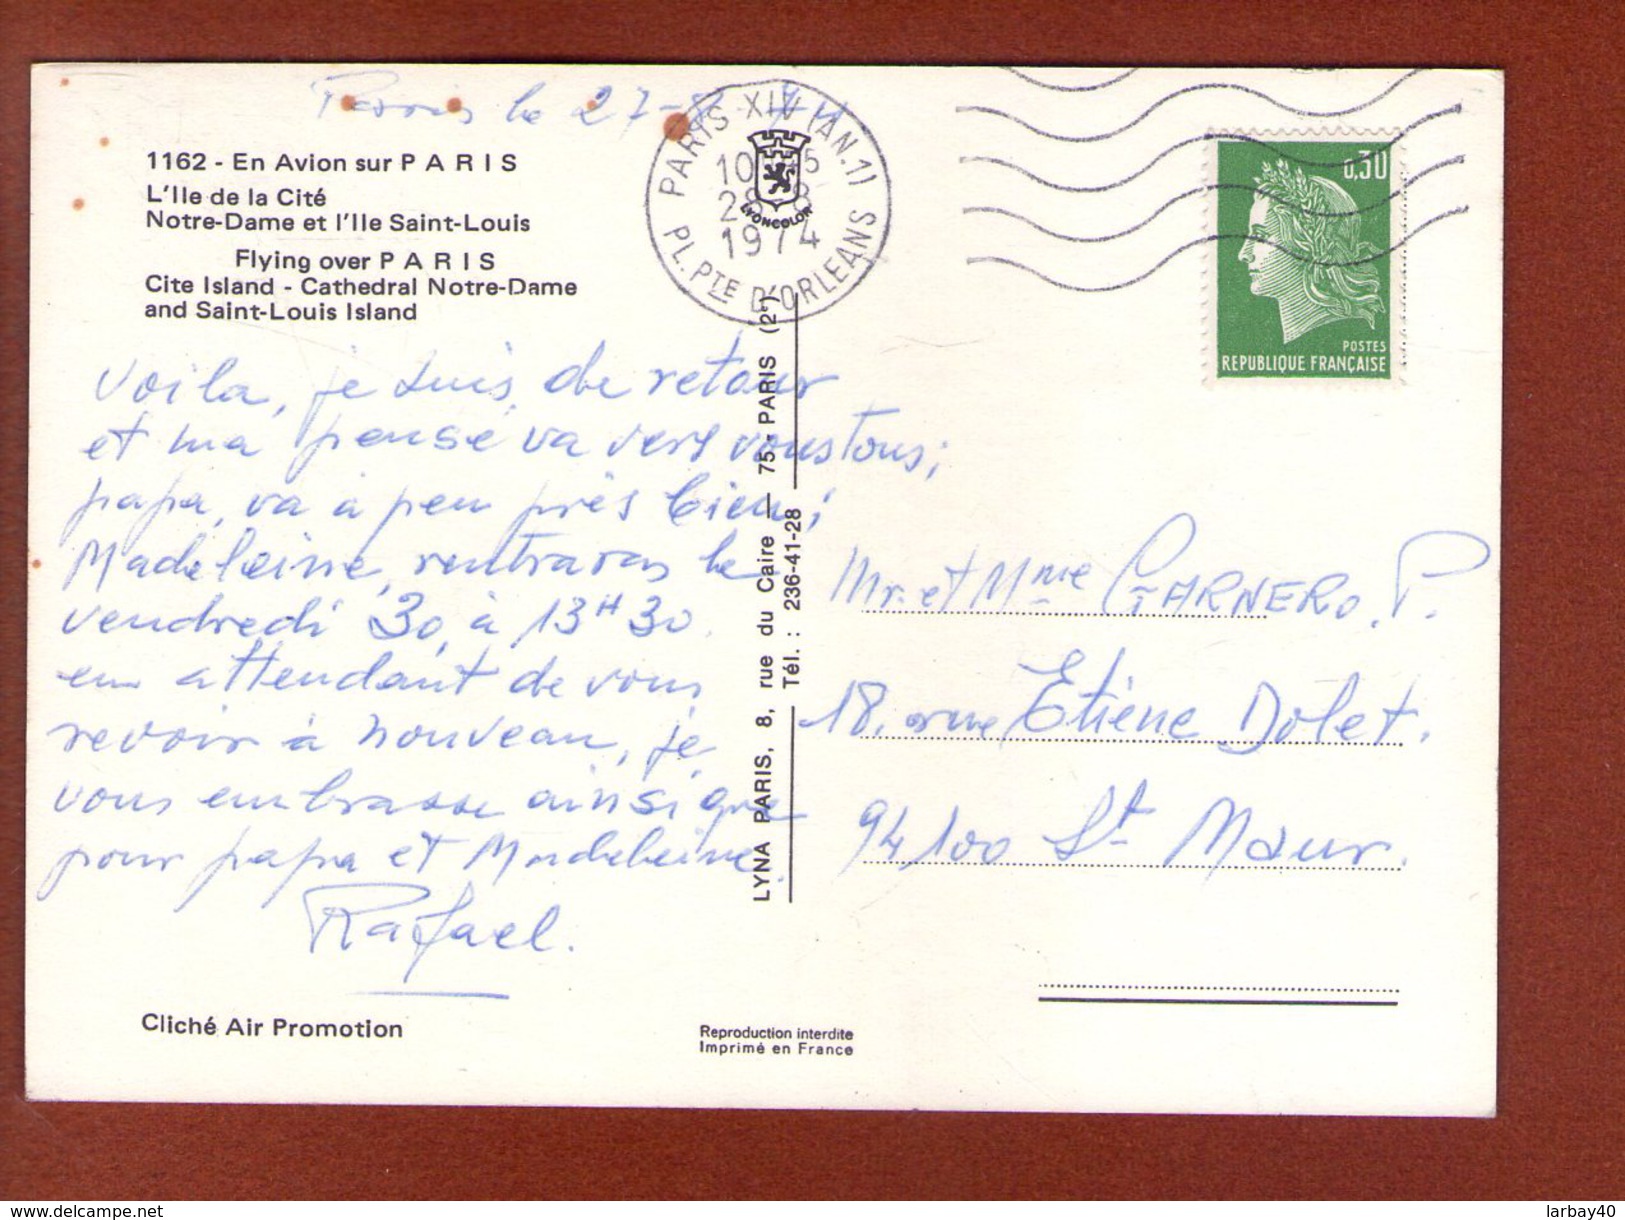 Paris le 27-8-74
1162 - En Avion sur PARIS
L'Ile de la Cité
Notre-Dame et l'Ile Saint-Louis
Flying over PARIS
Cite Island - Cathedral Notre-Dame
and Saint-Louis Island
Voila, je suis de retour
et ma pensé va vers vous tous;
papa, va à peu près bien;
Madeleine, rentraras le
vendredi 30, à 13H30.
en attendant de vous
revoir à nouveau, je
vous embrasse ainsi que
pour papa et Madeleine.
Rafael.
Cliché Air Promotion
PARIS XIV (AN.1)
10H45
28-8
1974
PL. PTE D'ORLEANS
LYONCOLOR
LYNA PARIS, 8, rue du Caire — 75 - PARIS (2e)
Tél. : 236-41-28
Reproduction interdite
Imprimé en France
0,30
POSTES
REPUBLIQUE FRANÇAISE
Mr. et Mme GARNERO. P.
18, rue Etiène Dolet.
94100 St Maur.
delcampe.net
larbay40